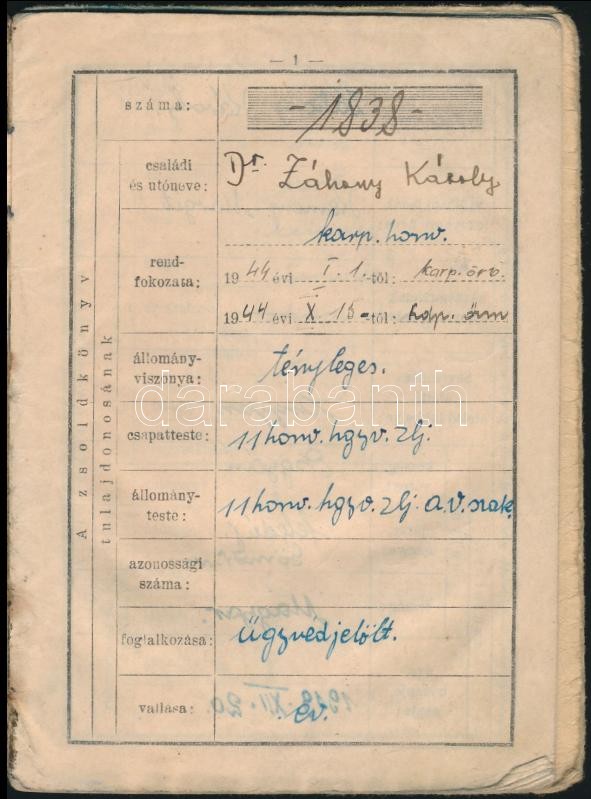 — 1 —
A zsoldkönyv
tulajdonosának
száma: -1838-
családi
és utóneve: Dr. Záhony Károly
karp. honv.
rend-
fokozata: 1944 évi I. 1. -től: karp. örv.
1944 évi X 15- -től: hdp. örm
állomány-
viszonya: tényleges.
csapatteste: 11 honv. hgyv. zlj.
állomány-
teste: 11 honv. hgyv. zlj. a.v. szak.
azonossági
száma:
foglalkozása: ügyvedjelölt.
vallása: ev.
darabanth